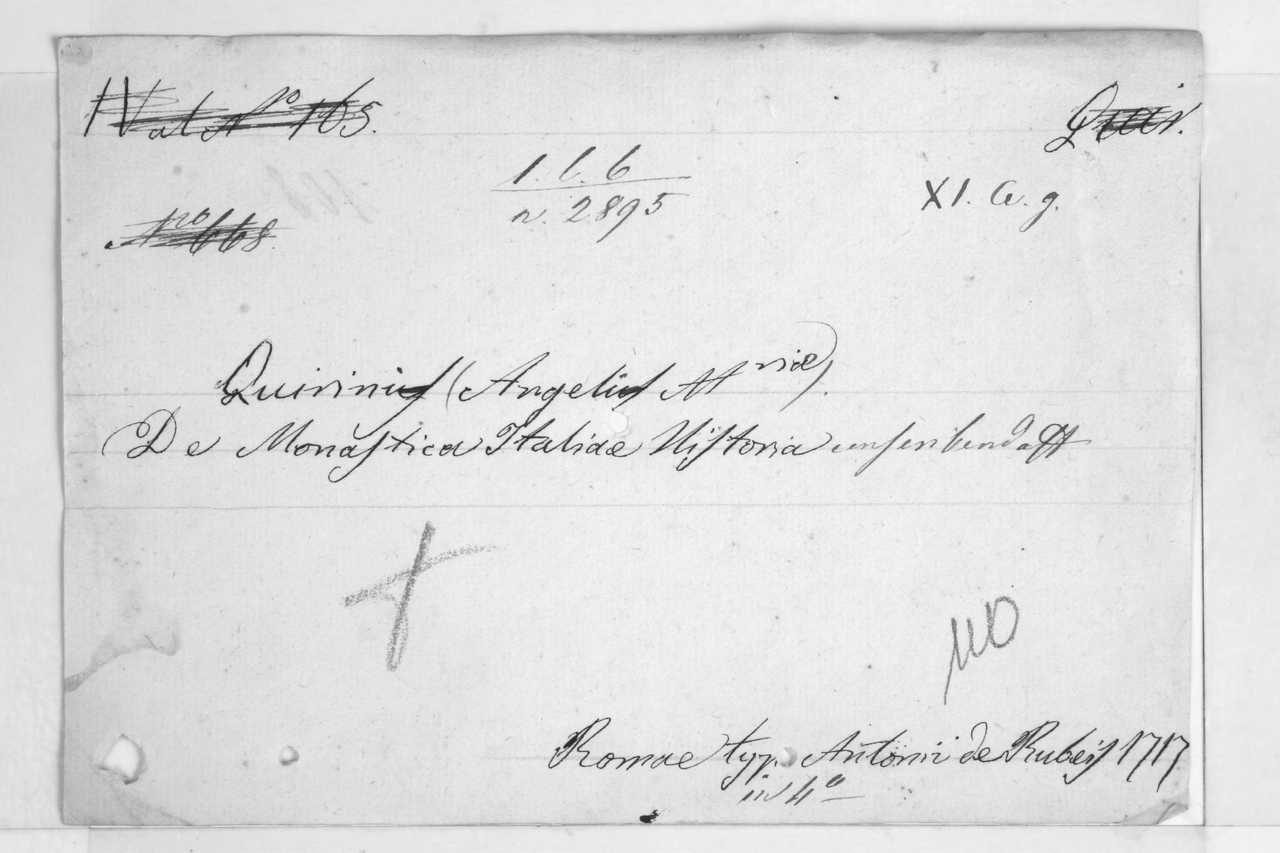 IVat N.º 165.
Quir.
1. 6. 6
n. 2895
XI. a. g.
Nº 668.
Quirinius (Angelus Mriae).
De Monastica Italiae Historia conscribenda
Romae typ. Antonii de Rubeis 1717
in 4º